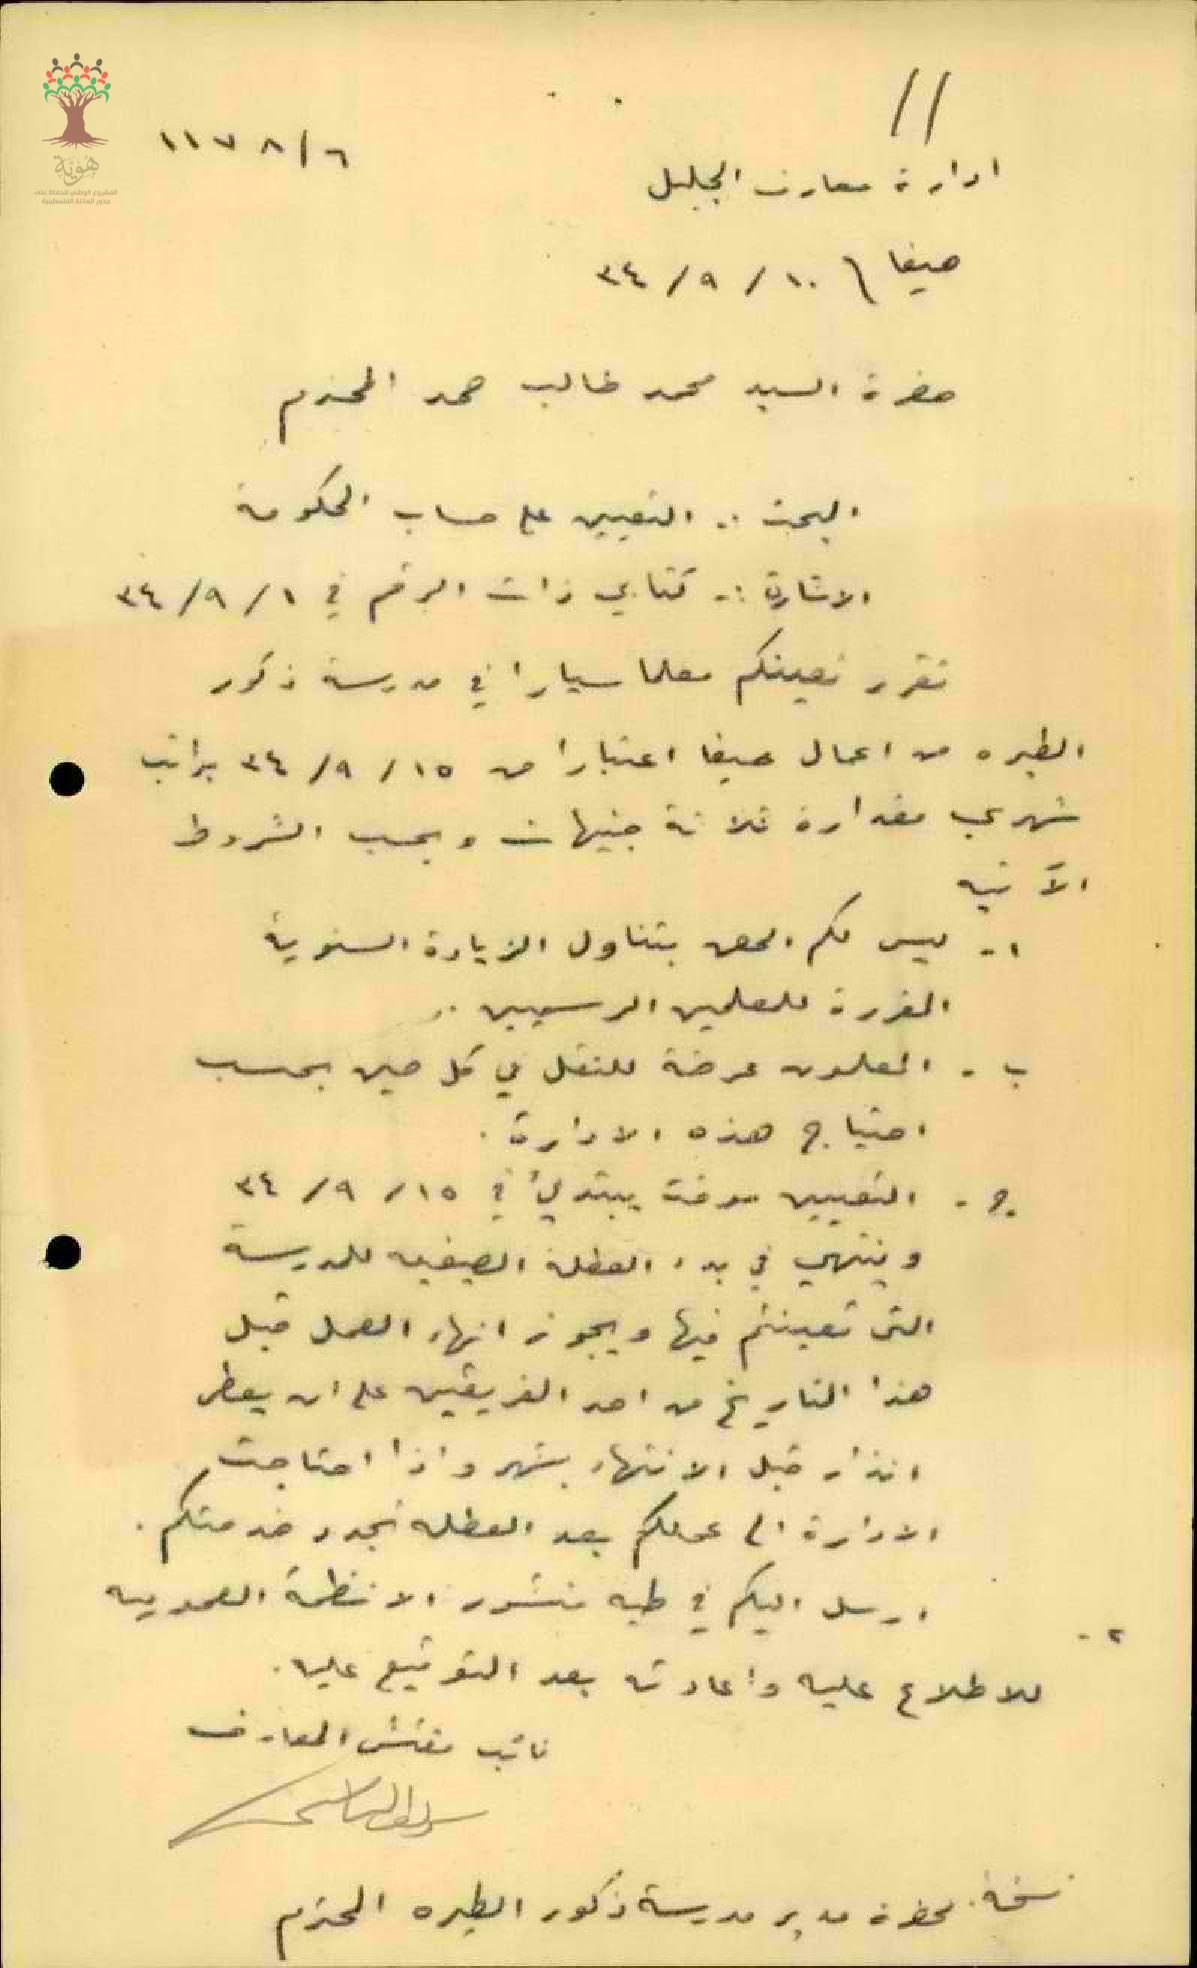 ١١
١١٧٨/٦
ادارة معارف الجليل
حيفا ١٠/٩/٣٤
حضرة السيد محمد طالب حمد المحترم
البحث :. التعيين على حساب الحكومة
الاشارة :- كتابي ذات الرقم في ٣٤/٩/١
تقرر تعيينكم معلما سيارا في مدرسة ذكور
الطيره من اعمال حيفا اعتبارا من ٣٤/٩/١٥ براتب
شهري مقداره ثلاثة جنيهات وبحسب الشروط
الآتيه
١- ليس لكم الحق بتناول الزيادة السنوية
المقررة للمعلمين الرسميين .
ب - المعلمون عرضة للنقل في كل حين بحسب
احتياج هذه الادارة .
ج - التعيين موقت يبتدئ في ٣٤/٩/١٥
وينتهي في بدء العطلة الصيفيه للمدرسة
التي تعينتم فيها ويجوز انهاء العمل قبل
هذا التاريخ من احد الفريقين على ان يعطى
انذار قبل الانتهاء بشهر واذا احتاجت
الادارة الى عملكم بعد العطله تجدد خدمتكم .
٢- ارسل اليكم في طيه منشور الانظمة
للاطلاع عليه واعادته بعد التوقيع عليه .
نائب مفتش المعارف
نسخة لحضرة مدير مدرسة ذكور الطيره المحترم
هُوِيَّة
المشروع الوطني للحفاظ على
جذور العائلة الفلسطينية